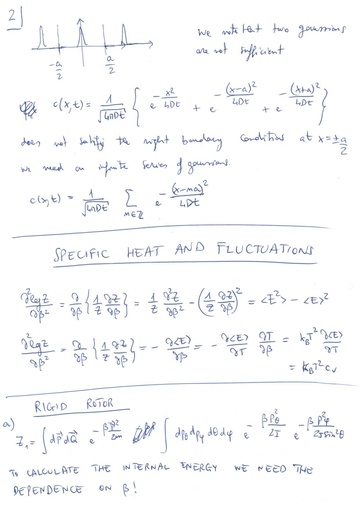 2)
We note that two gaussians
are not sufficient
-a/2 a/2
c(x,t) = 1/√(4πDt) { e^(-x²/4Dt) + e^(-(x-a)²/4Dt) + e^(-(x+a)²/4Dt) }
does not satisfy the right boundary conditions at x = ± a/2
we need an infinite series of gaussians.
c(x,t) = 1/√(4πDt) ∑_(m∈Z) e^(-(x-ma)²/4Dt)
SPECIFIC HEAT AND FLUCTUATIONS
∂²logZ/∂β² = ∂/∂β { 1/Z ∂Z/∂β } = 1/Z ∂²Z/∂β² - (1/Z ∂Z/∂β)² = <E²> - <E>²
∂²logZ/∂β² = ∂/∂β { 1/Z ∂Z/∂β } = - ∂<E>/∂β = - ∂<E>/∂T ∂T/∂β = k_B T² ∂<E>/∂T
= k_B T² c_v
RIGID ROTOR
a) Z₁ = ∫ dp⃗ dQ⃗ e^(-β p²/2m) ∫ dp_θ dp_φ dθ dφ e^(-β p_θ²/2I) e^(-β p_φ²/2I sin²θ)
TO CALCULATE THE INTERNAL ENERGY WE NEED THE
DEPENDENCE ON β!